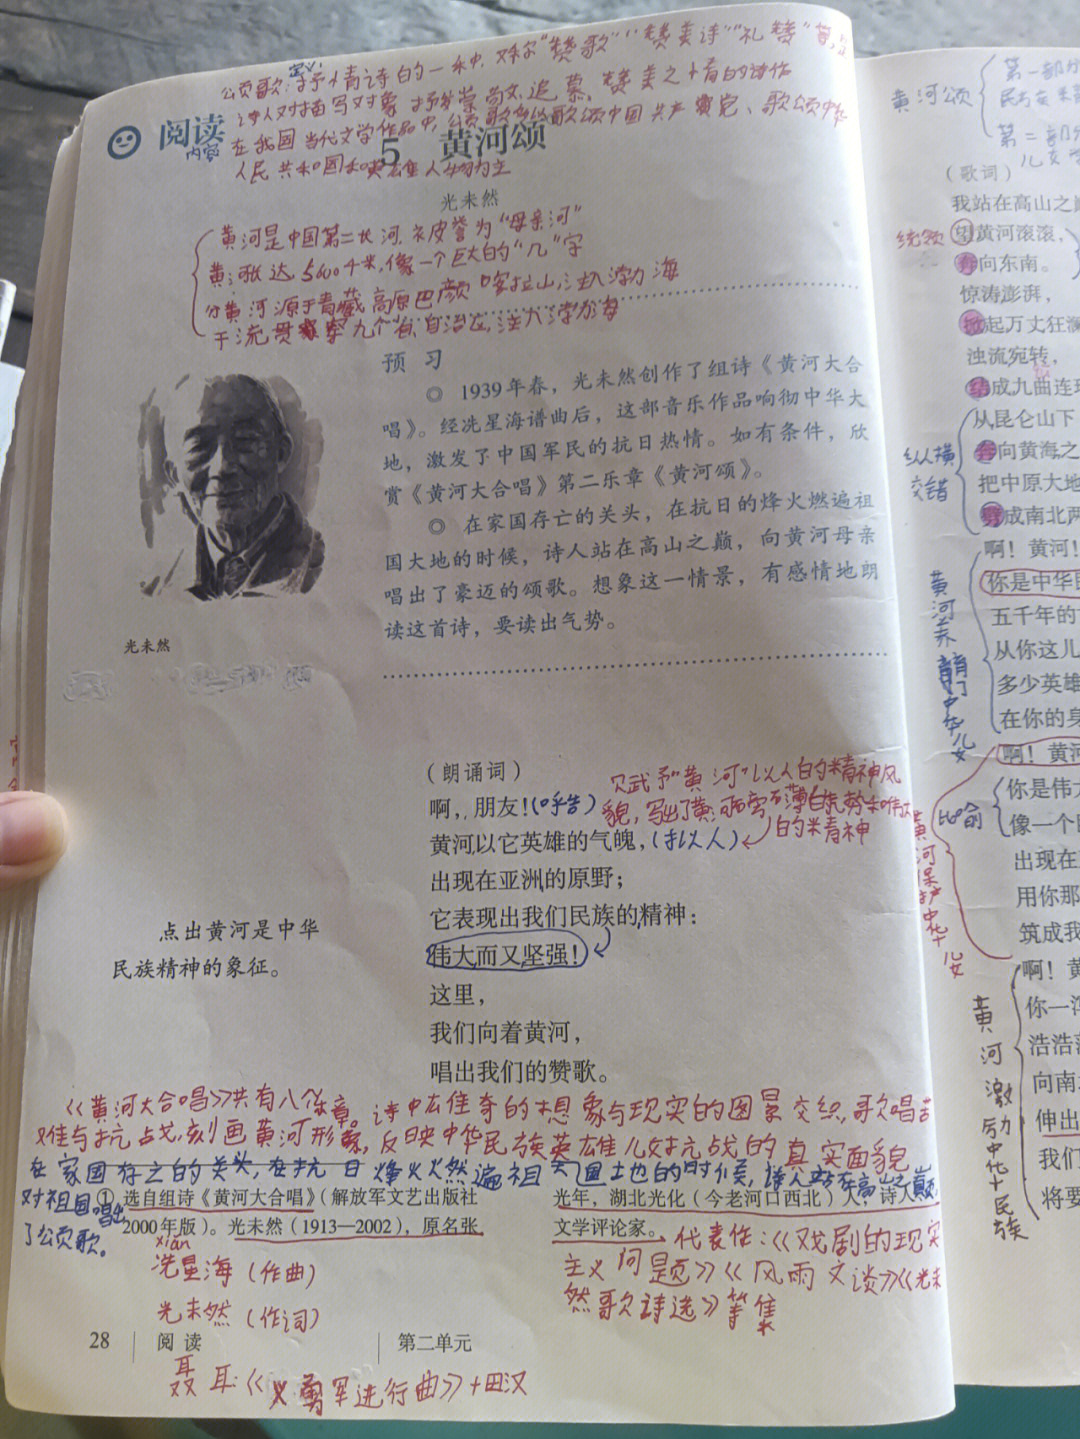 颂歌:抒情诗的一种,又称"赞歌""赞美诗""礼赞"等,
定义
诗人对描写对象抒发崇敬、追慕、赞美之情的诗作
在我国当代文学作品中,颂歌多以歌颂中国共产党、歌颂中华
人民共和国和英雄人物为主
阅读
内容
5 黄河颂
光未然
黄河是中国第二长河,被誉为"母亲河"
黄河长达5600千米,像一个巨大的"几"字
黄河源于青藏高原巴颜喀拉山,注入渤海
干流贯穿九个省、自治区,注入渤海
预 习
◎ 1939年春,光未然创作了组诗《黄河大合
唱》。经冼星海谱曲后,这部音乐作品响彻中华大
地,激发了中国军民的抗日热情。如有条件,欣
赏《黄河大合唱》第二乐章《黄河颂》。
◎ 在家国存亡的关头,在抗日的烽火燃遍祖
国大地的时候,诗人站在高山之巅,向黄河母亲
唱出了豪迈的颂歌。想象这一情景,有感情地朗
读这首诗,要读出气势。
光未然
(朗诵词)
啊,朋友!(呼告)
黄河以它英雄的气魄,(拟人)
出现在亚洲的原野;
它表现出我们民族的精神:
伟大而又坚强!
这里,
我们向着黄河,
唱出我们的赞歌。
赋予"黄河"以人的精神风
貌,写出了黄河磅礴的气势和伟大
的精神
点出黄河是中华
民族精神的象征。
《黄河大合唱》共有八个乐章。诗中雄奇的想象与现实的图景交织,歌唱苦
难与抗战,刻画黄河形象,反映中华民族英雄儿女抗战的真实面貌
在家国存亡的关头,在抗日烽火燃遍祖国土地的时候,诗人站在高山之巅,
对祖国唱出
了颂歌。
① 选自组诗《黄河大合唱》(解放军文艺出版社
2000年版)。光未然(1913—2002),原名张
光年,湖北光化(今老河口西北)人,诗人,
文学评论家。
代表作:《戏剧的现实
主义问题》《风雨文谈》《光未
然歌诗选》等集
xiǎn
冼星海(作曲)
光未然(作词)
28 阅 读 第二单元
聂耳:《义勇军进行曲》+田汉
黄河颂
第一部分
第二部分
(歌词)
我站在高山之巅
统领
望黄河滚滚,
奔向东南。
惊涛澎湃,
掀起万丈狂澜
浊流宛转,
结成九曲连环
纵横
交错
从昆仑山下
奔向黄海之
把中原大地
劈成南北两
啊!黄河!
你是中华民
五千年的
从你这儿
多少英雄
在你的身
黄河养育了中华儿女
啊!黄河
比喻
你是伟大
像一个
出现在
用你那
筑成我
黄河保护中华儿女
啊!黄
你一泻
浩浩荡
向南
伸出
我们
将要
黄河激励中华民族